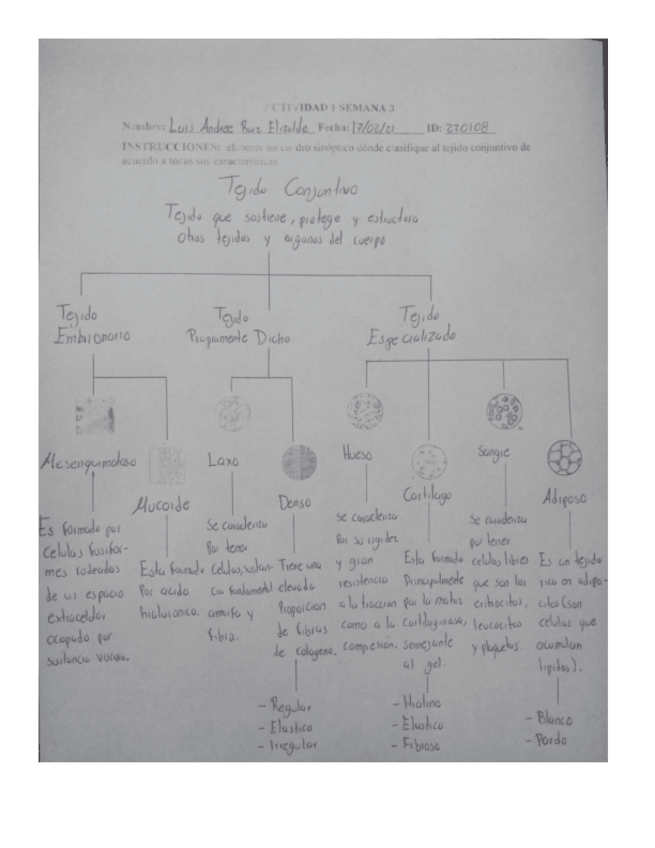 CTIVIDAD 1 SEMANA 3
Nombre: Luis Andree Ruiz Elizalde Fecha: 17/02/21 ID: 220108
INSTRUCCIONES: elaborar un cuadro sinóptico dónde clasifique al tejido conjuntivo de
acuerdo a todas sus características
Tejido Conjuntivo
Tejido que sostiene, protege y estructura
otros tejidos y organos del cuerpo
Tejido
Embrionario
Tejido
Propiamente Dicho
Tejido
Especializado
Mesenquimatoso
Es formado por
celulas fusifor-
mes rodeadas
de un espacio
extracelular
ocupado por
sustancia
Mucoide
Esta formado
por acido
hialuronico.
Laxo
Se caracteriza
por tener
celulas, sustan-
cia fundamental
amorfa y
fibra.
Denso
Tiene una
elevada
Proporcion
de fibras
de colageno.
- Regular
- Elastico
- Irregular
Hueso
Se caracteriza
Por su rigidez
y gran
resistencia
a la traccion
como a la
compresion.
Cartilago
Esta formado
Principalmente
por la matriz
cartilaginosa,
semejante
al gel.
- Hialino
- Elastico
- Fibroso
Sangre
Se caracteriza
por tener
celulas libres
que son los
eritrocitos,
leucocitos
y plaquetas.
Adiposo
Es un tejido
rico en adipo-
citos (son
celulas que
acumulan
lipidos).
- Blanco
- Pardo